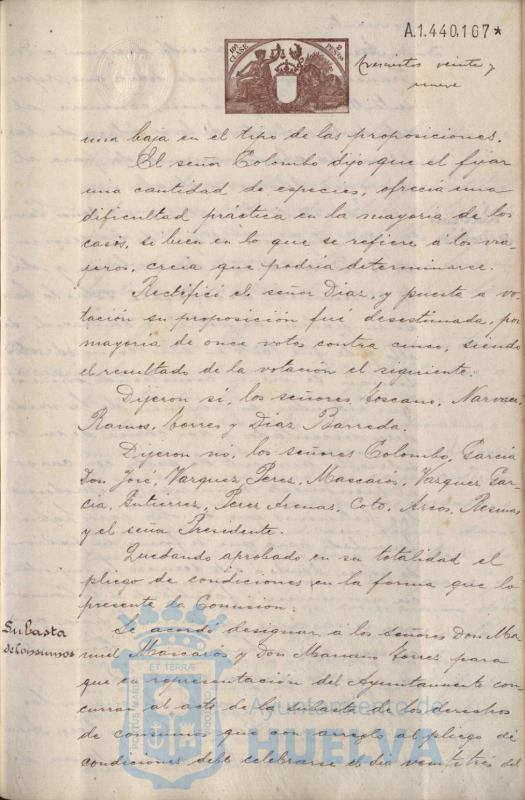 A.1.440.167*
10ª CLASE 2 PESETAS
trescientos veinte y
nueve
una baja en el tipo de las proposiciones.
El señor Colombo dijo que el fijar
una cantidad de especies, ofrecia una
dificultad práctica en la mayoria de los
casos, si bien en lo que se refiere á los via-
jeros, creia que podria determinarse.
Rectificó el señor Diaz, y puesta a vo-
tación su proposición fué desestimada, por
mayoria de once votos contra cinco, siendo
el resultado de la votación el siguiente:
Dijeron sí, los señores, Toscano, Narvaez,
Ramos, Torres y Diaz Barreda.
Dijeron no, los señores Colombo, Garcia
Don José, Vazquez Perez, Mascarós, Vazquez Gar-
cia, Gutierrez, Perez Arenas, Coto, Arcos, Resinas
y el señor Presidente.
Quedando aprobado en su totalidad el
pliego de condiciones en la forma que lo
presente la Comision.
Subasta
de Consumos
Se acordó designar a los señores Don Ma-
nuel Mascarós y Don Mariano Torres para
que en representación del Ayuntamiento con-
curran al acto de la subasta de los derechos
de consumos que con arreglo al pliego de
condiciones debe celebrarse el dia veintitres del
PORTUS MARIS ET TERRÆ CUSTODIA
Ayuntamiento de
HUELVA